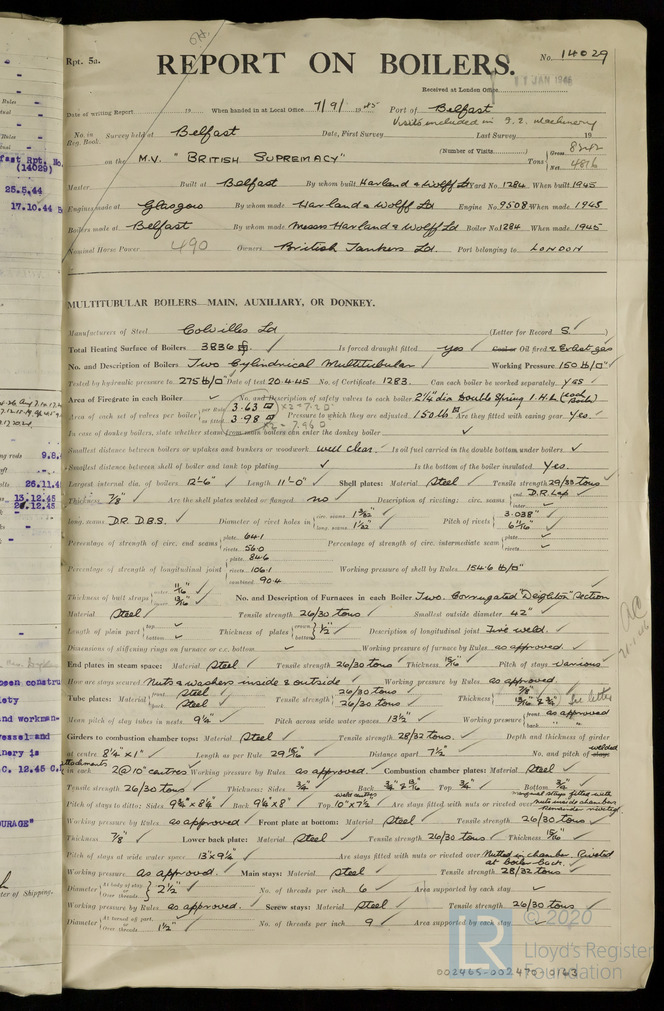 Rpt. 5a.
REPORT ON BOILERS.
No. 14029
Received at London Office
11 JAN 1946
Date of writing Report 19 When handed in at Local Office 7/9/ 1945 Port of Belfast
Visits included in machinery
No. in Reg. Book. Survey held at Belfast Date, First Survey Last Survey 19
on the M.V. "BRITISH SUPREMACY" (Number of Visits) Tons Gross 8242 Net 4816
Master Built at Belfast By whom built Harland & Wolff Ld Yard No. 1284 When built 1945
Engines made at Glasgow By whom made Harland & Wolff Ld Engine No. 9508 When made 1945
Boilers made at Belfast By whom made Messrs Harland & Wolff Ld Boiler No. 1284 When made 1945.
Nominal Horse Power 490 Owners British Tankers Ld. Port belonging to LONDON
MULTITUBULAR BOILERS MAIN, AUXILIARY, OR DONKEY.
Manufacturers of Steel Colvilles Ld (Letter for Record S. )
Total Heating Surface of Boilers 3836 Is forced draught fitted yes Oil fired & Exhst. gas
No. and Description of Boilers Two Cylindrical Multitubular Working Pressure 150 lb/□"
Tested by hydraulic pressure to 275 lb/□" Date of test 20.4.45 No. of Certificate 1283. Can each boiler be worked separately yes
Area of Firegrate in each Boiler ✓ No. and Description of safety valves to each boiler 2¼" dia Double Spring I.H.L.
Area of each set of valves per boiler per Rule 3.63 as fitted 3.98 Pressure to which they are adjusted 150 lb Are they fitted with easing gear yes.
In case of donkey boilers, state whether steam from main boilers can enter the donkey boiler ✓
Smallest distance between boilers or uptakes and bunkers or woodwork well clear. Is oil fuel carried in the double bottom under boilers ✓
Smallest distance between shell of boiler and tank top plating ✓ Is the bottom of the boiler insulated yes.
Largest internal dia. of boilers 12'-6" Length 11'-0" Shell plates: Material Steel Tensile strength 29/33 tons
Thickness 7/8" Are the shell plates welded or flanged no Description of riveting: circ. seams end D.R. Lap inter. ✓
long. seams D.R. D.B.S. Diameter of rivet holes in circ. seams 1 3/32" long. seams 1 1/32" Pitch of rivets 3.038" 6 11/16"
Percentage of strength of circ. end seams plate 64.1 rivets 56.0 Percentage of strength of circ. intermediate seam plate ✓ rivets ✓
Percentage of strength of longitudinal joint plate 84.6 rivets 106.1 combined 90.4 Working pressure of shell by Rules 154.6 lb/□"
Thickness of butt straps outer 11/16" inner 13/16" No. and Description of Furnaces in each Boiler Two. Corrugated "Deighton" Section
Material Steel Tensile strength 26/30 tons Smallest outside diameter 42"
Length of plain part top ✓ bottom ✓ Thickness of plates crown bottom 1/2" Description of longitudinal joint Fire weld.
Dimensions of stiffening rings on furnace or c.c. bottom ✓ Working pressure of furnace by Rules as approved.
End plates in steam space: Material Steel Tensile strength 26/30 tons Thickness 15/16" Pitch of stays various
How are stays secured Nuts & washers inside & outside Working pressure by Rules as approved.
Tube plates: Material front Steel back Steel Tensile strength 26/30 tons 26/30 tons Thickness 7/8" See letter
Mean pitch of stay tubes in nests 9¼" Pitch across wide water spaces 13½" Working pressure front as approved back " "
Girders to combustion chamber tops: Material Steel Tensile strength 28/32 tons. Depth and thickness of girder
at centre 8¼" x 1" Length as per Rule 29 15/16" Distance apart 7½" No. and pitch of welded
attachments in each 2 @ 10" centres Working pressure by Rules as approved. Combustion chamber plates: Material Steel
Tensile strength 26/30 tons Thickness: Sides 3/4" Back Top 3/4" Bottom 3/4"
Pitch of stays to ditto: Sides Back 9¼" x 8" Top 10" x 7½" Are stays fitted with nuts or riveted over marginal stays fitted with nuts inside chambers Remainder riveted
Working pressure by Rules as approved Front plate at bottom: Material Steel Tensile strength 26/30 tons
Thickness 7/8" Lower back plate: Material Steel Tensile strength 26/30 tons Thickness 15/16"
Pitch of stays at wide water space 13" x 9¼" Are stays fitted with nuts or riveted over Nutted in chamber. Riveted at boiler back.
Working pressure as approved. Main stays: Material Steel Tensile strength 28/32 tons
Diameter At body of stay or Over threads 2½" No. of threads per inch 6 Area supported by each stay ✓
Working pressure by Rules as approved. Screw stays: Material Steel Tensile strength 26/30 tons
Diameter At turned off part. or Over threads 1½" No. of threads per inch 9 Area supported by each stay ✓
002465-002470-0163
© 2020
LR
Lloyd's Register
Foundation
fast Rpt. No.
(14029)
25.5.44
17.10.44
9.8.
26.11.4
13.12.45
24.12.45
been constru
iety
nd workman-
vessel and
nery is
C. 12.45 C.
OURAGE"
ter of Shipping.